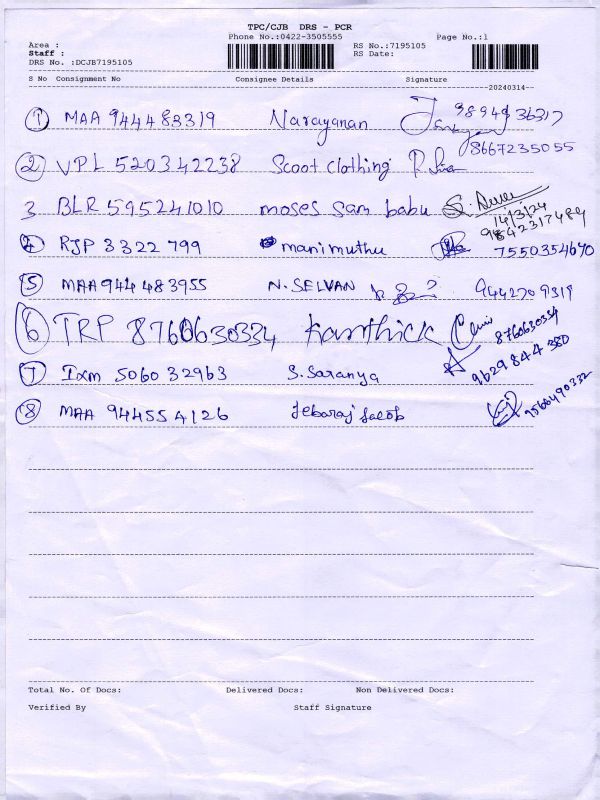 TPC/CJB DRS - PCR
Phone No.:0422-3505555 Page No.:1
Area :
Staff : RS No.:7195105
DRS No. :DCJB7195105 RS Date:
S No Consignment No Consignee Details Signature
20240314
1 MAA 944483319 Narayanan 9894936317
8667235055
2 VPL 520342238 Scoot clothing
3 BLR 595241010 moses sam babu
14/3/24
9842317489
4 RJP 3322799 manimuthu 7550354670
5 MAA944483955 N. SELVAN 9442709319
6 TRP 8760630334 Karthick 8760630334
7 Ixm 506032963 S. Saranya 9629844380
8 MAA 944554126 Jebaraj Jacob 9566490332
Total No. Of Docs: Delivered Docs: Non Delivered Docs:
Verified By Staff Signature